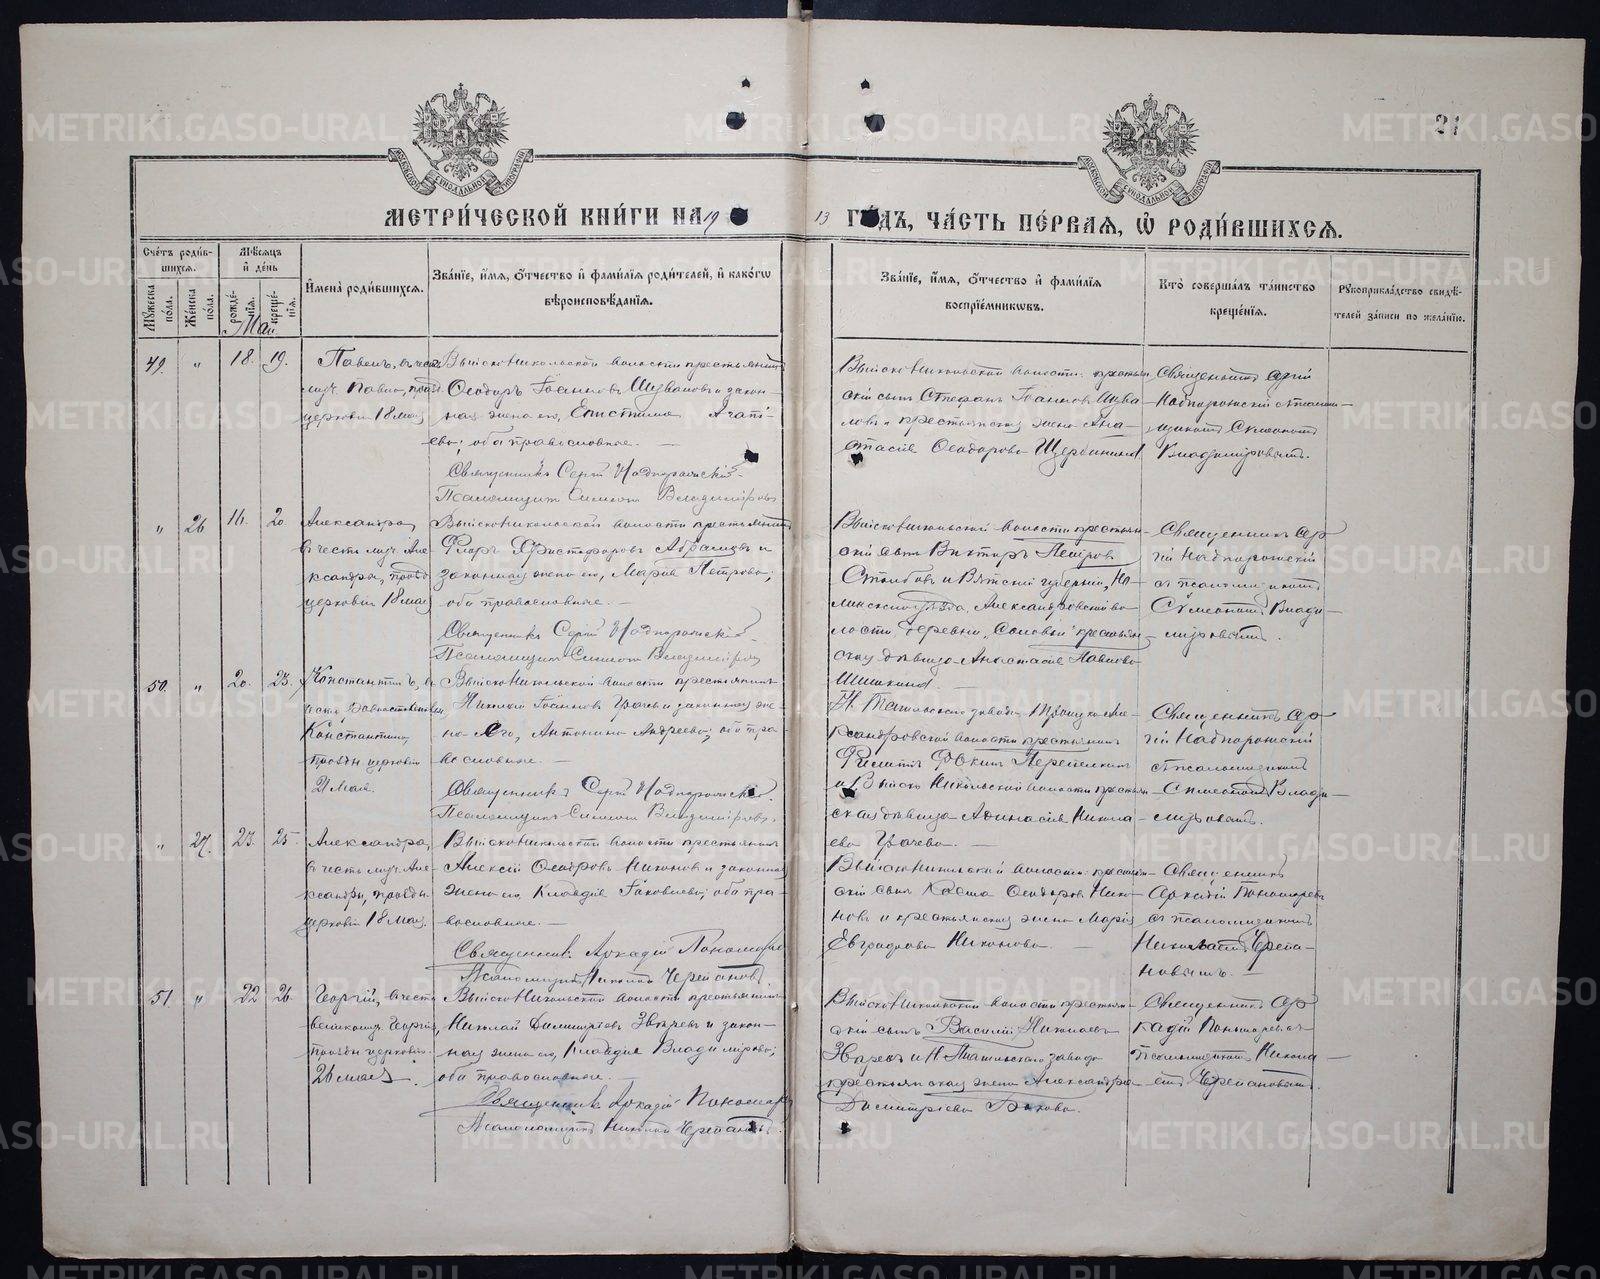 21
МОСКОВСКОЙ СѴНОДАЛЬНОЙ ТИПОГРАФІИ
МОСКОВСКОЙ СѴНОДАЛЬНОЙ ТИПОГРАФІИ
МЕТРИ́ЧЕСКОЙ КНИ́ГИ НА 19
13 ГО́ДЪ, ЧА́СТЬ ПЕ́РВАЯ, Ѡ РОДИ́ВШИХСЯ.
Счетъ роди́вшихся.
Мѣсяцъ и день
Мужеска пола.
Женска пола.
рожденія.
крещенія.
Имена̀ родившихся.
Зва́нїе, и́мя, о́тчество и фами́лїя роди́телей, и како́гѡ вѣроисповѣ́данїя.
Зва́нїе, и́мя, о́тчество и фами́лїя воспрїе́мникѡвъ.
Кто̀ соверша́лъ та́инство креще́нїя.
Рукоприкла́дство свидѣ́телей за́писи по жела́нїю.
Май
49. " 18. 19.
Павелъ, въ честь
муч. Павла, празд.
церковію 18 мая
Выйско Никольской волости крестьянинъ
Ѳеодоръ Іоанновъ Шуваловъ и закон-
ная жена его, Епистимія Агапі-
ева; оба православные. —
Священникъ Сергій Надпорожскій
Псаломщикъ Симеонъ Владиміровъ
Выйско Никольской волости крестьян
скій сынъ Стефанъ Іоанновъ Шува
ловъ и крестьянская жена Ана-
стасія Ѳеодорова Щербинина
Священникъ Сергій
Надпорожскій съ псалом-
щикомъ Сѵмеономъ
Владиміровымъ.
" 26 16. 20
Александра,
въ честь муч. Але-
ксандры, празд
церковію 18 мая
Выйско Никольской волости крестьянинъ
Флоръ Христофоровъ Абрамовъ и
законная жена его, Марія Петрова;
оба православные. —
Священникъ Сергій Надпорожскій
Псаломщикъ Симеонъ Владиміровъ
Выйско Никольской волости крестьян-
скій сынъ Викторъ Петровъ
Столбовъ и Вятской губерніи,
уѣзда, Александровской во-
лости, деревни крестьян-
ская дѣвица Анастасія Павлова
Шишкина —
Священникъ Сер
гій Надпорожскій
съ псаломщикомъ
Сѵмеономъ Влади-
міровымъ.
50. " 20. 23.
Константинъ, въ
честь Равноапостольн.
Константина,
празд. церковію
21 мая.
Выйско Никольской волости крестьянинъ
Николай Іоанновъ Грачевъ и законная же-
на его, Антонина Андреева; оба пра-
вославные. —
Священникъ Сергій Надпорожскій
Псаломщикъ Симеонъ Владиміровъ
Н. Тагильскаго завода Троицко Але-
ксандровской волости крестьянинъ
Филиппъ Перепелкинъ
и Выйско Никольской волости крестьян-
ская дѣвица Аѳанасія Никола-
ева Грачева. —
Священникъ Сер
гій Надпорожскій
съ псаломщикомъ
Симеономъ Влади-
міровымъ.
" 27. 23. 25.
Александра,
въ честь муч. Але-
ксандры, празд.
церковію 18 мая.
Выйско Никольской волости крестьянинъ
Алексій Ѳеодоровъ Никоновъ и законная
жена его, Клавдія Іаковлева; оба пра-
вославные. —
Священник. Аркадій Пономаревъ
Псаломщикъ Николай Черепановъ
Выйско Никольской волости крестьян-
скій сынъ Ѳеодоровъ Нико-
новъ и крестьянская жена Марія
Евграфова Никонова. —
Священникъ
Аркадій Пономаревъ
съ псаломщикомъ
Николаемъ Черепа-
новымъ. —
51 " 22 26
Георгій, въ честь
великомуч. Георгія,
празд. церковію
26 мая.
Выйско Никольской волости крестьянинъ
Николай Димитріевъ Звѣревъ и закон-
ная жена его, Клавдія Владимірова;
оба православные. —
Священникъ Аркадій Пономаревъ
Псаломщикъ Николай Черепановъ
Выйско Никольской волости крестьян-
скій сынъ Василій Николаевъ
Звѣревъ и Н. Тагильскаго завода
крестьянская жена Александра
Димитріева Быкова.
Священникъ Ар
кадій Пономаревъ съ
псаломщикомъ Никола-
емъ Черепановымъ.
METRIKI.GASO-URAL.RU